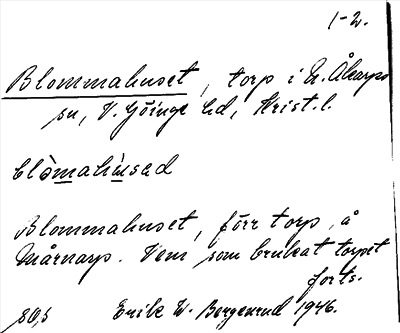 1-2.
Blommahuset, torp i N. Åkarps
sn, V. Göinge hd, Krist. l.
blòmahùsad
Blommahuset, förr torp å
Mårnarp. Vem som brukat torpet
forts.
80,5 Erik W. Bergenrud 1946.